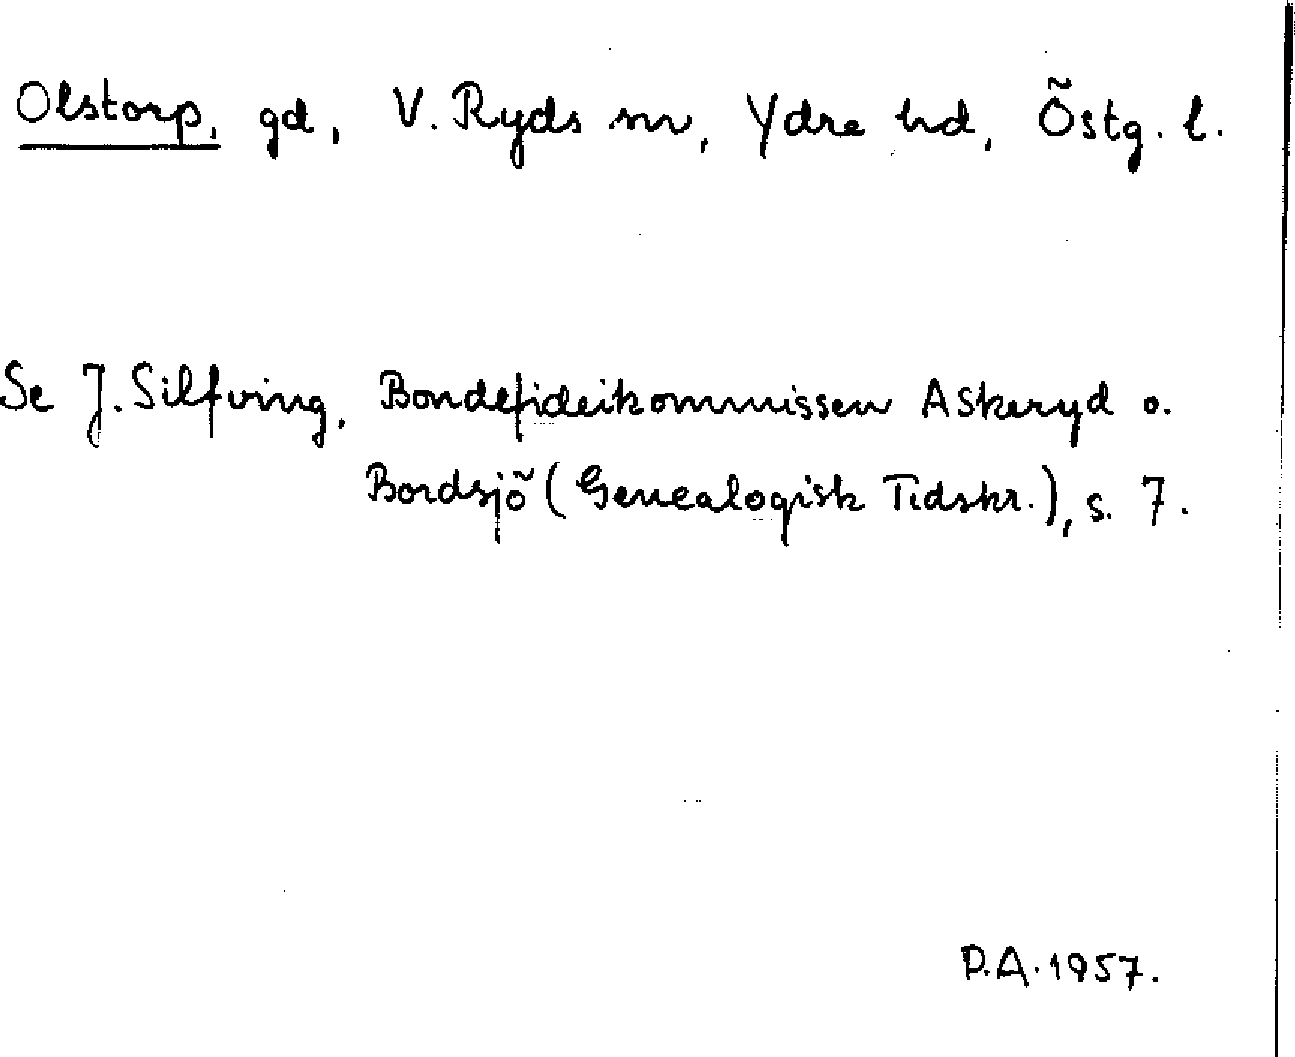 Olstorp, gd, V. Ryds sn, Ydre hd, Östg. l.
Se J. Silfving, Bondefideikommissen Askeryd o.
Bordsjö (Genealogisk Tidskr.), s. 7.
P.A. 1957.